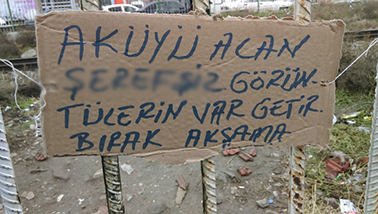 AKÜYÜ ALAN
GÖRÜN-
TÜLERİN VAR GETİR.
BIRAK AKŞAMA